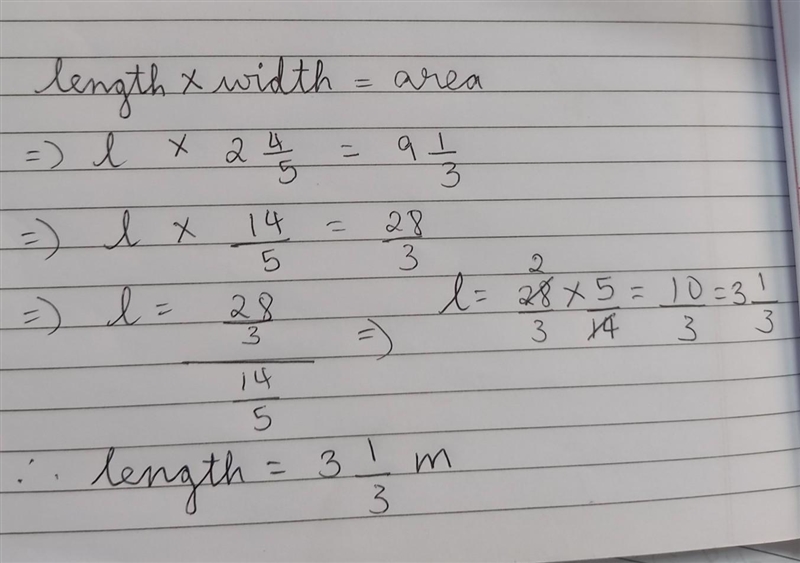 length × width = area
⇒ l × 2 4/5 = 9 1/3
⇒ l × 14/5 = 28/3
⇒ l = 28/3 / 14/5 ⇒ l = 28/3 × 5/14 = 10/3 = 3 1/3
2
∴ length = 3 1/3 m